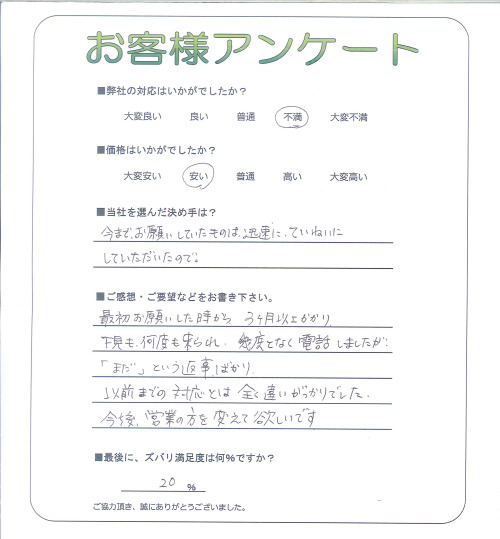 お客様アンケート
■弊社の対応はいかがでしたか?
大変良い 良い 普通 不満 大変不満
■価格はいかがでしたか?
大変安い 安い 普通 高い 大変高い
■当社を選んだ決め手は?
今まで、お願いしていたものは、迅速に、ていねいに
していただいたので。
■ご感想・ご要望などをお書き下さい。
最初お願いした時から 3ヶ月以上かかり
下見も、何度も来られ、幾度となく電話しましたが、
「まだ」という返事ばかり、
以前までの対応とは全く違いがっかりでした。
今後、営業の方を変えて欲しいです
■最後に、ズバリ満足度は何%ですか?
20 %
ご協力頂き、誠にありがとうございました。